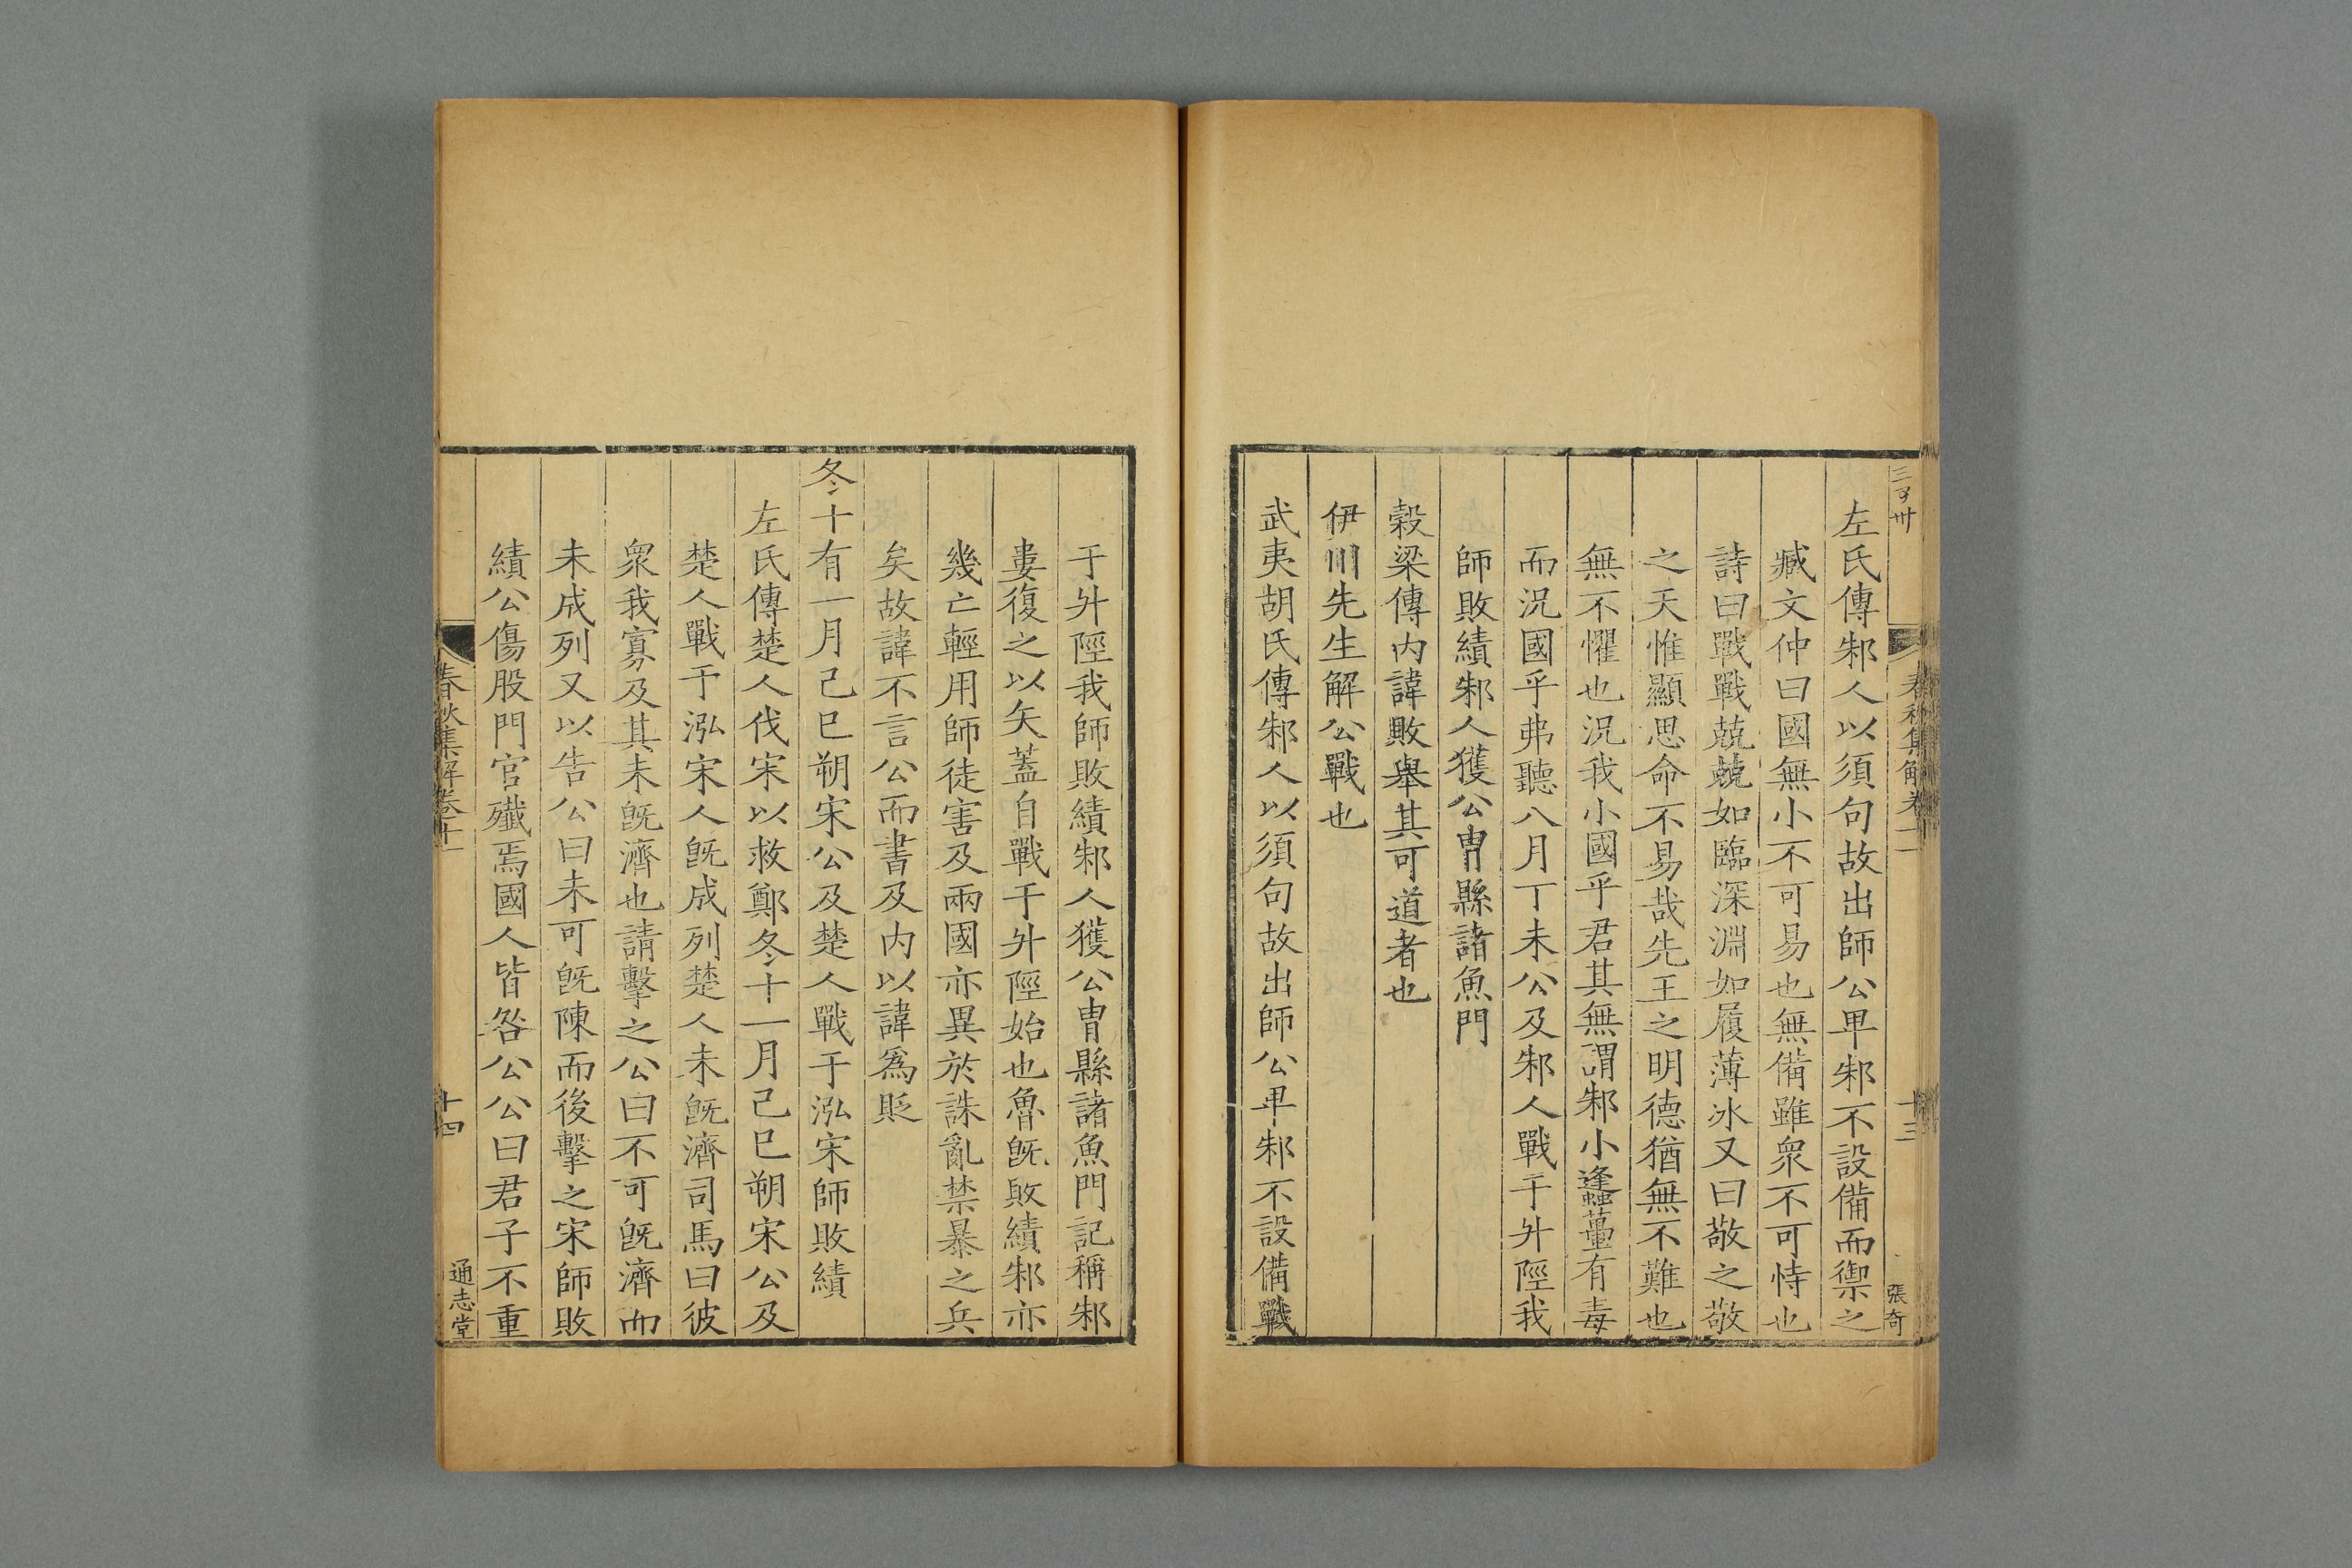 春秋集解卷十一
十三
張奇
左氏傳邾人以須句故出師公卑邾不設備而禦之
臧文仲曰國無小不可易也無備雖衆不可恃也
詩曰戰戰兢兢如臨深淵如履薄冰又曰敬之敬
之天惟顯思命不易哉先王之明德猶無不難也
無不懼也況我小國乎君其無謂邾小蠭蠆有毒
而況國乎弗聽八月丁未公及邾人戰于升陘我
師敗績邾人獲公冑縣諸魚門
穀梁傳內諱敗舉其可道者也
伊川先生解公戰也
武夷胡氏傳邾人以須句故出師公卑邾不設備戰
于升陘我師敗績邾人獲公冑縣諸魚門記稱邾
婁復之以矢蓋自戰于升陘始也魯旣敗績邾亦
幾亡輕用師徒害及兩國亦異於誅亂禁暴之兵
矣故諱不言公而書及內以諱爲貶
冬十有一月己巳朔宋公及楚人戰于泓宋師敗績
左氏傳楚人伐宋以救鄭冬十一月己巳朔宋公及
楚人戰于泓宋人旣成列楚人未旣濟司馬曰彼
衆我寡及其未旣濟也請擊之公曰不可旣濟而
未成列又以告公曰未可旣陳而後擊之宋師敗
績公傷股門官殲焉國人皆咎公公曰君子不重
春秋集解卷十一
十四
通志堂